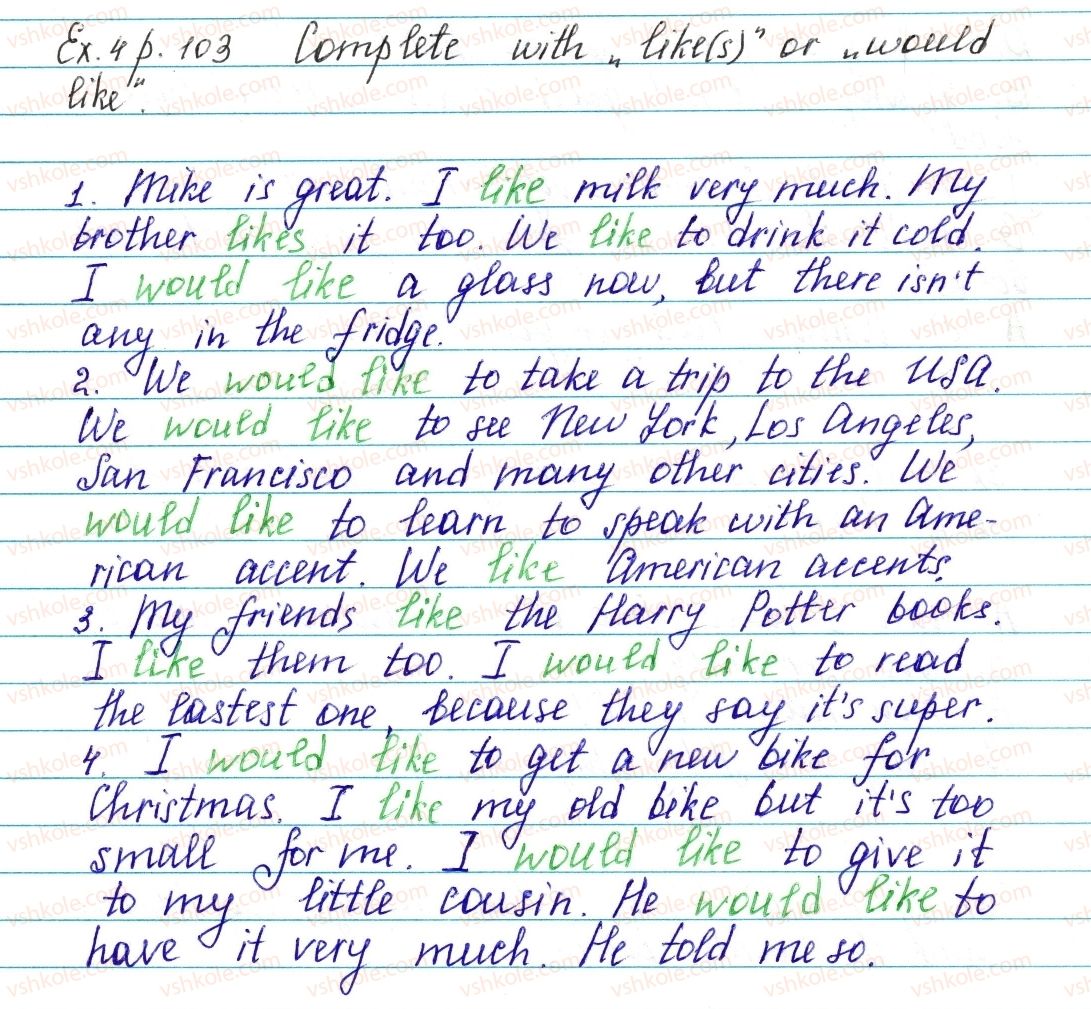 Ex. 4 p. 103 Complete with „like(s)” or „would
like”.
1. Mike is great. I like milk very much. My
brother likes it too. We like to drink it cold.
I would like a glass now, but there isn't
any in the fridge.
2. We would like to take a trip to the USA.
We would like to see New York, Los Angeles,
San Francisco and many other cities. We
would like to learn to speak with an Ame-
rican accent. We like American accents.
3. My friends like the Harry Potter books.
I like them too. I would like to read
the lastest one, because they say it's super.
4. I would like to get a new bike for
Christmas. I like my old bike but it's too
small for me. I would like to give it
to my little cousin. He would like to
have it very much. He told me so.
vshkole.com